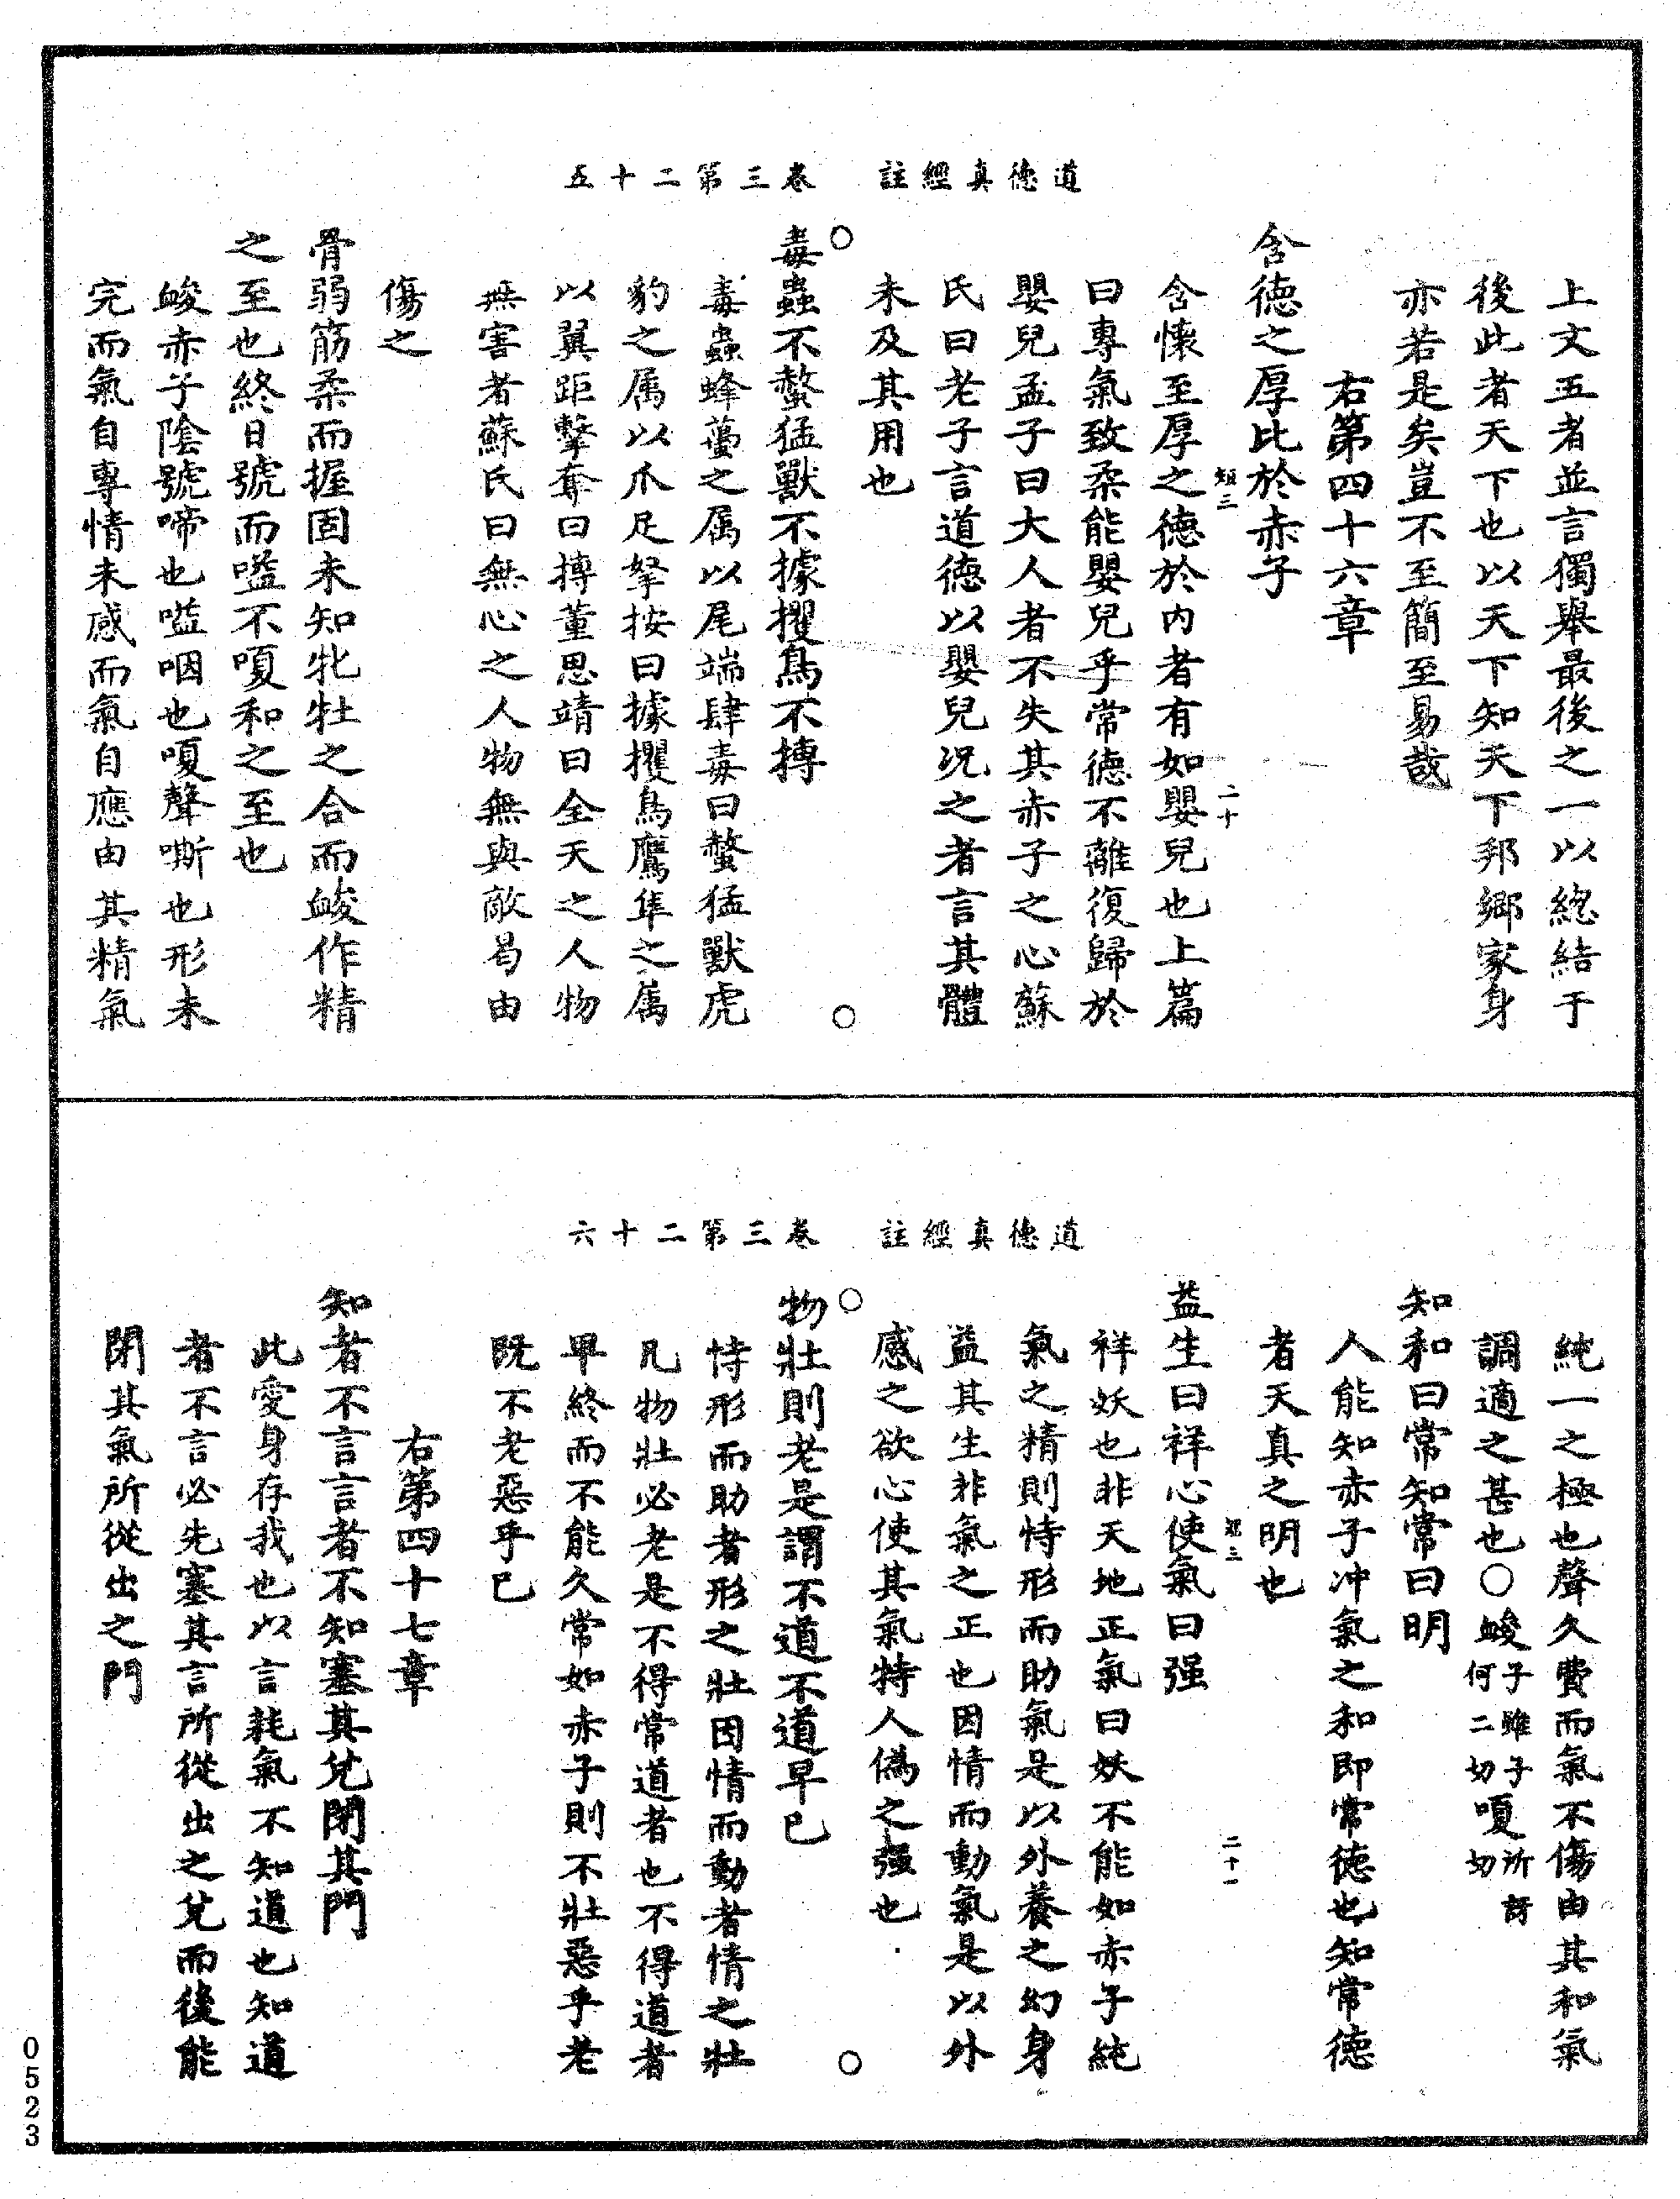 道德真經註　卷三第二十五
上文五者並言獨舉最後之一以總結于
後此者天下也以天下知天下邦鄉家身
亦若是矣豈不至簡至易哉
右第四十六章
含德之厚比於赤子
含懷至厚之德於內者有如嬰兒也上篇
曰專氣致柔能嬰兒乎常德不離復歸於
嬰兒孟子曰大人者不失其赤子之心蘇
氏曰老子言道德以嬰兒况之者言其體
未及其用也
毒蟲不螫猛獸不據攫鳥不搏
毒蟲蜂蠆之属以尾端肆毒曰螫猛獸虎
豹之属以爪足拏按曰據攫鳥鷹隼之属
以翼距擊奪曰搏董思靖曰全天之人物
無害者蘇氏曰無心之人物無與敵曷由
傷之
骨弱筋柔而握固未知牝牡之合而䘒作精
之至也終日號而嗌不嗄和之至也
䘒赤子陰號啼也嗌咽也嗄聲嘶也形未
完而氣自專情未感而氣自應由其精氣
道德真經註　卷三第二十六
純一之極也聲久費而氣不傷由其和氣
調適之甚也○䘒子雖子何二切嗄所訝切
知和曰常知常曰明
人能知赤子冲氣之和即常德也知常德
者天真之明也
益生曰祥心使氣曰强
祥妖也非天地正氣曰妖不能如赤子純
氣之精則恃形而助氣是以外養之幻身
益其生非氣之正也因情而動氣是以外
感之欲心使其氣特人偽之强也
物壯則老是謂不道不道早已
恃形而助者形之壯因情而動者情之壯
凡物壯必老是不得常道者也不得道者
早終而不能久常如赤子則不壯惡乎老
既不老惡乎已
右第四十七章
知者不言言者不知塞其兌閉其門
此愛身存我也以言耗氣不知道也知道
者不言必先塞其言所從出之兌而後能
閉其氣所從出之門
0523